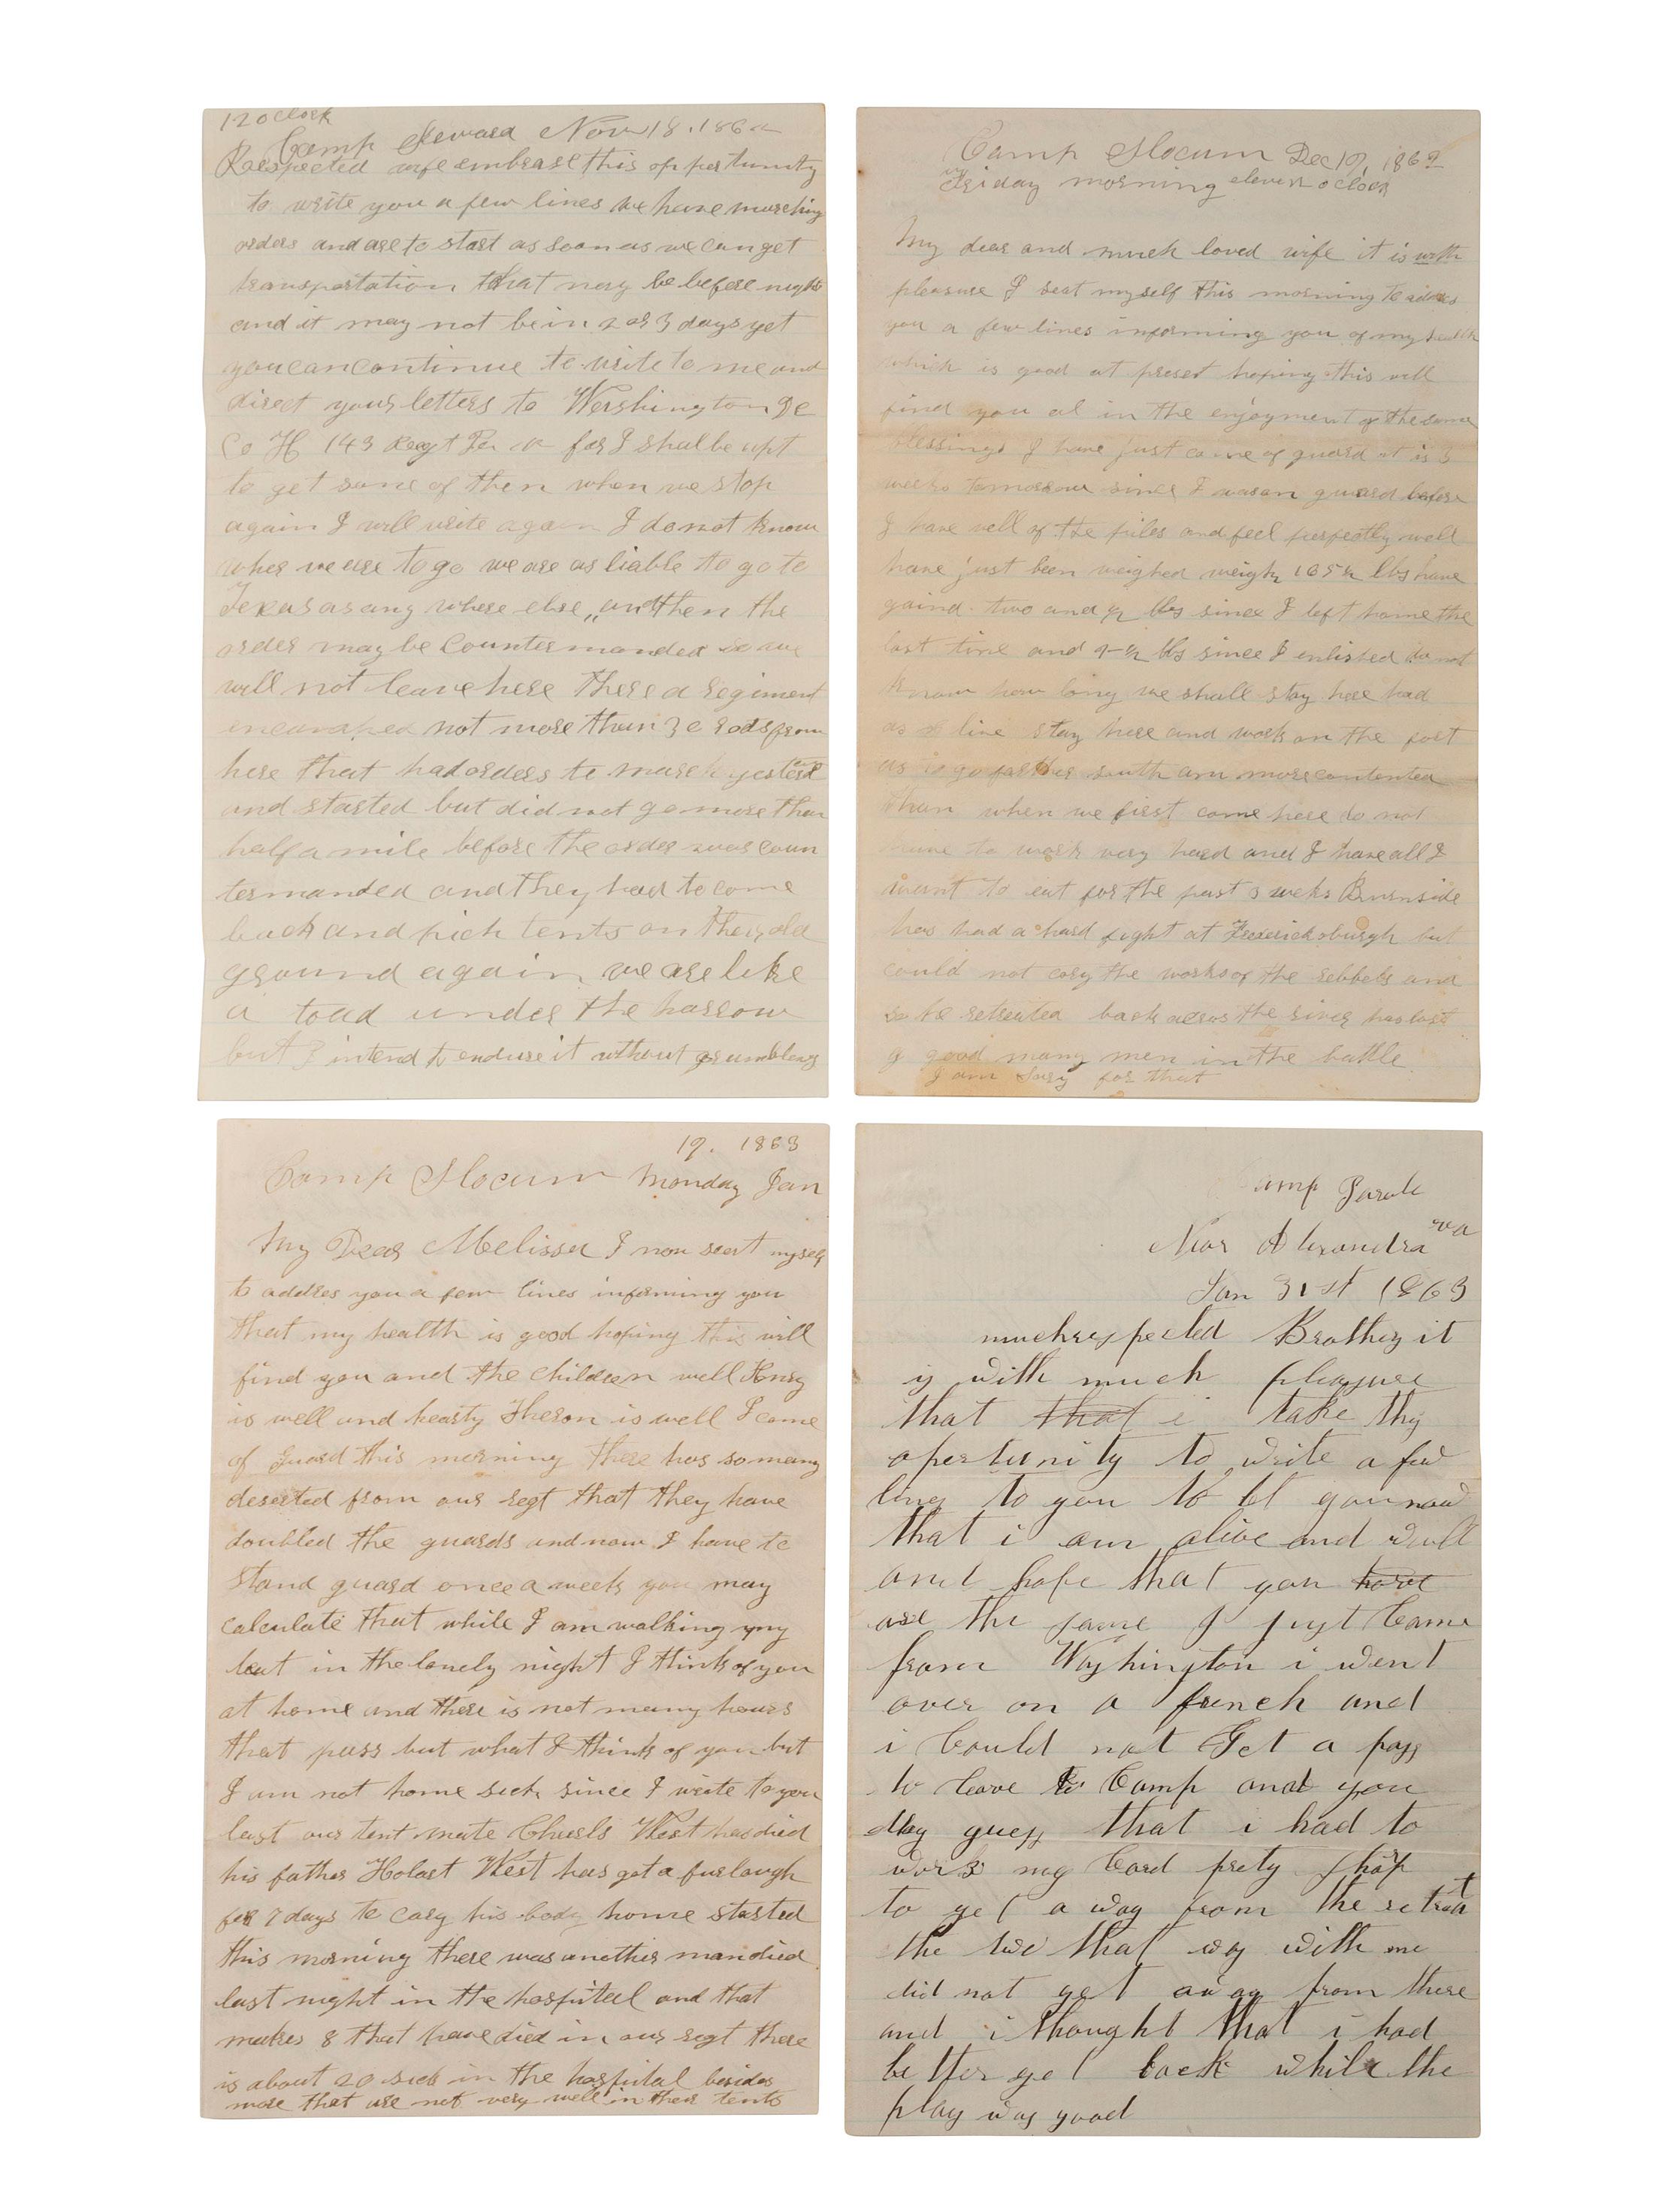 12 oclock
Camp Seward Nov 18. 1862
Respected wife embrase this oppertunity
to write you a few lines we have marching
orders and are to start as soon as we can get
transportation that may be before night
and it may not be in 2 or 3 days yet
you can continue to write to me and
direct your letters to Washington DC
Co H 143 Regt for I shal be apt
to get some of then when we stop
again I will write again I do not know
wher we are to go we are as liable to go to
Texas as any where else and then the
order may be Countermanded so we
will not leave here There a regiment
encamped not more than 30 rods from
here that had orders to march yesterd
and started but did not go more than
half a mile before the order was coun
termanded and they had to come
back and pich tents on their old
ground again we are like
a toad under the harrow
but I intend to endure it without grumbleng
Camp Slocum Dec 19, 1862
Friday morning eleven oclock
My dear and much loved wife it is with
pleasure I seat myself this morning to adres
you a few lines informing you of my health
which is good at preset hoping this will
find you al in the enjoyment of the same
blessings I have just come of guard it is 3
weeks tomorrow since I was on guard before
I have vell of the piles and feel perfectly well
have just been weighed weigh 165½ lbs have
gaind two and ½ lbs since I left home the
last time and 9-½ lbs since I enlisted do not
know how long we shall stay here had
as live stay here and work on the fort
as to go farther south am more contented
than when we first came here do not
have to work very hard and I have all I
want to eat for the past 3 weeks Burnside
has had a hard fight at Fredericksburgh but
could not cary the works of the rebbels and
so he retreated back across the river has lost
a good many men in the battle
I am Sory for that
19. 1863
Camp Slocum Monday Jan
My Dear Melissa I now seat myself
to addres you a few lines informing you
that my health is good hoping this will
find you and the children well Henry
is well and hearty Theron is well I come
of guard this morning there has so many
deserted from our regt that they have
doubled the guards and now I have to
stand guard once a week you may
calculate that while I am walking my
beat in the lonely night I think of you
at home and there is not many hours
that pass but what I think of you but
I am not home sick since I write to you
last our tent mate Charls West has died
his father Holast West has got a furlough
for 7 days to cary his body home started
this morning there was another man died
last night in the hospital and that
makes 8 that have died in our regt there
is about 20 sick in the hospital besides
more that are not very well in their tents
Camp Parole
Near Alexandra va
Jan 31st 1863
much respected Brother it
is with much pleasure
that that i take this
opertunity to write a few
lines to you to let you now
that i am alive and well
and hope that you have
are the same I just Came
from Washington i went
over on a french and
i Could not Get a pass
to leave to Camp and you
may guess that i had to
work my Card prety sharp
to get a way from the retreat
the two that was with me
did not get away from there
and i thought that i had
better get back while the
play was good